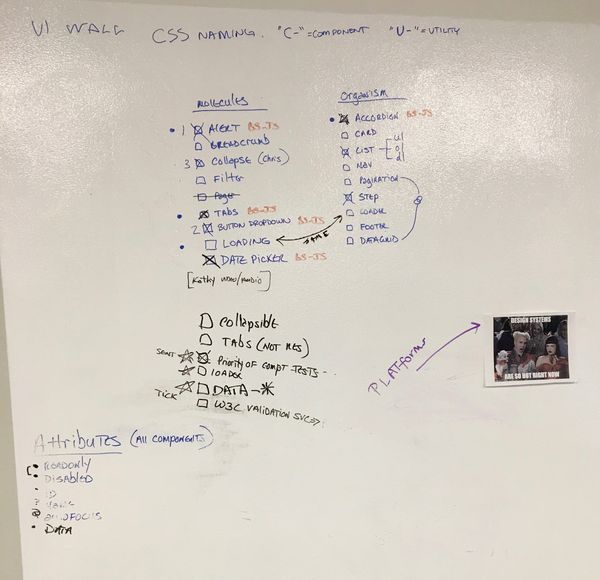 UI WALL CSS NAMING. "C-"=COMPONENT "U-"=UTILITY
MOLECULES
1 ALERT BS-JS
BREADCRUMB
3 COLLAPSE (Chris)
Filter
Pager
TABS BS-JS
2 BUTTON DROPDOWN BS-JS
LOADING
DATE PICKER BS-JS
[Kathy
Organism
ACCORDION BS-JS
CARD
LIST ul
ol
dl
NAV
PAGINATION
STEP
LOADER
FOOTER
DATAGRID
SAME
Collapsible
TABS (NOT RES)
Priority of COMPT TESTS
LOADER
TICK DATA-*
W3C VALIDATION
PLATFORM
DESIGN SYSTEMS
ARE SO HOT RIGHT NOW
Attributes (ALL COMPONENTS)
READONLY
DISABLED
ID
AUTOFOCUS
DATA